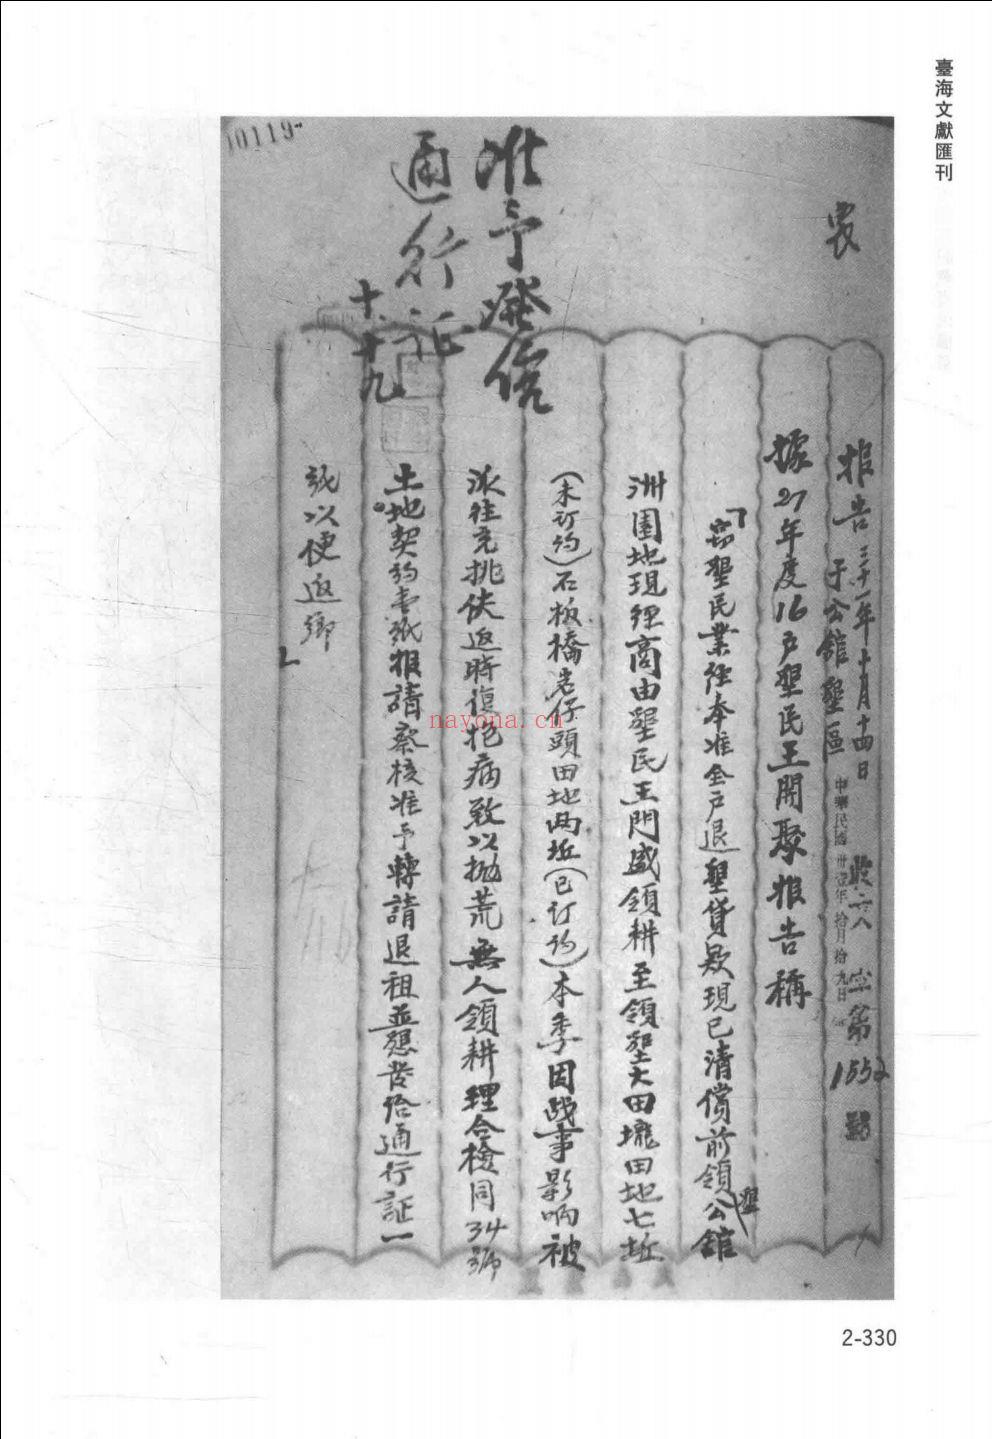 臺海文獻匯刊
10119
農
准予發信
通行证
十、十九
报告 三十一年十月十四日
于公館墾區
收 六八 字第1552號
中華民國卅壹年拾月拾九日
據27年度16户墾民王開聚报告稱
「窃墾民業经奉准全户退墾貸款現已清償前領墾公館
洲園地現经商由墾民王門盛領耕至領墾大田壠田地七坵
(未订约)石板橋岩仔頭田地两坵(已订约)本季因战事影响被
派往充挑伕返時復抱病致以抛荒無人領耕理合檢同34號
土地契约書紙报請察核准予轉請退租並懇发给通行証一
紙以便返鄉
」
nayona.cn
2-330